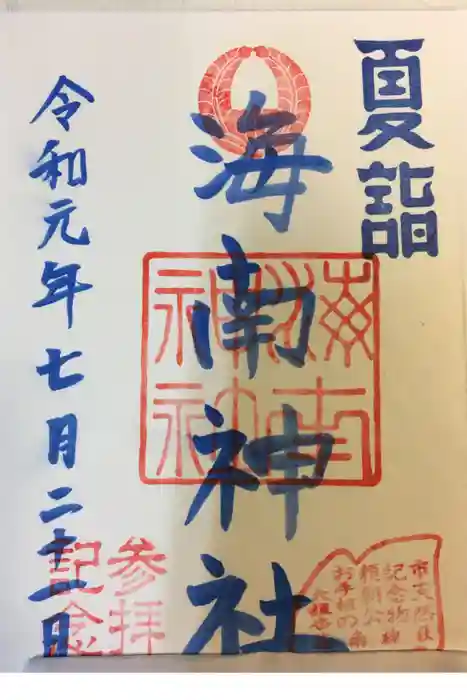 夏詣
海南神社
海南
神社
令和元年七月二十一日
参拝
記念
市天然
記念物
頼朝公
お手植の